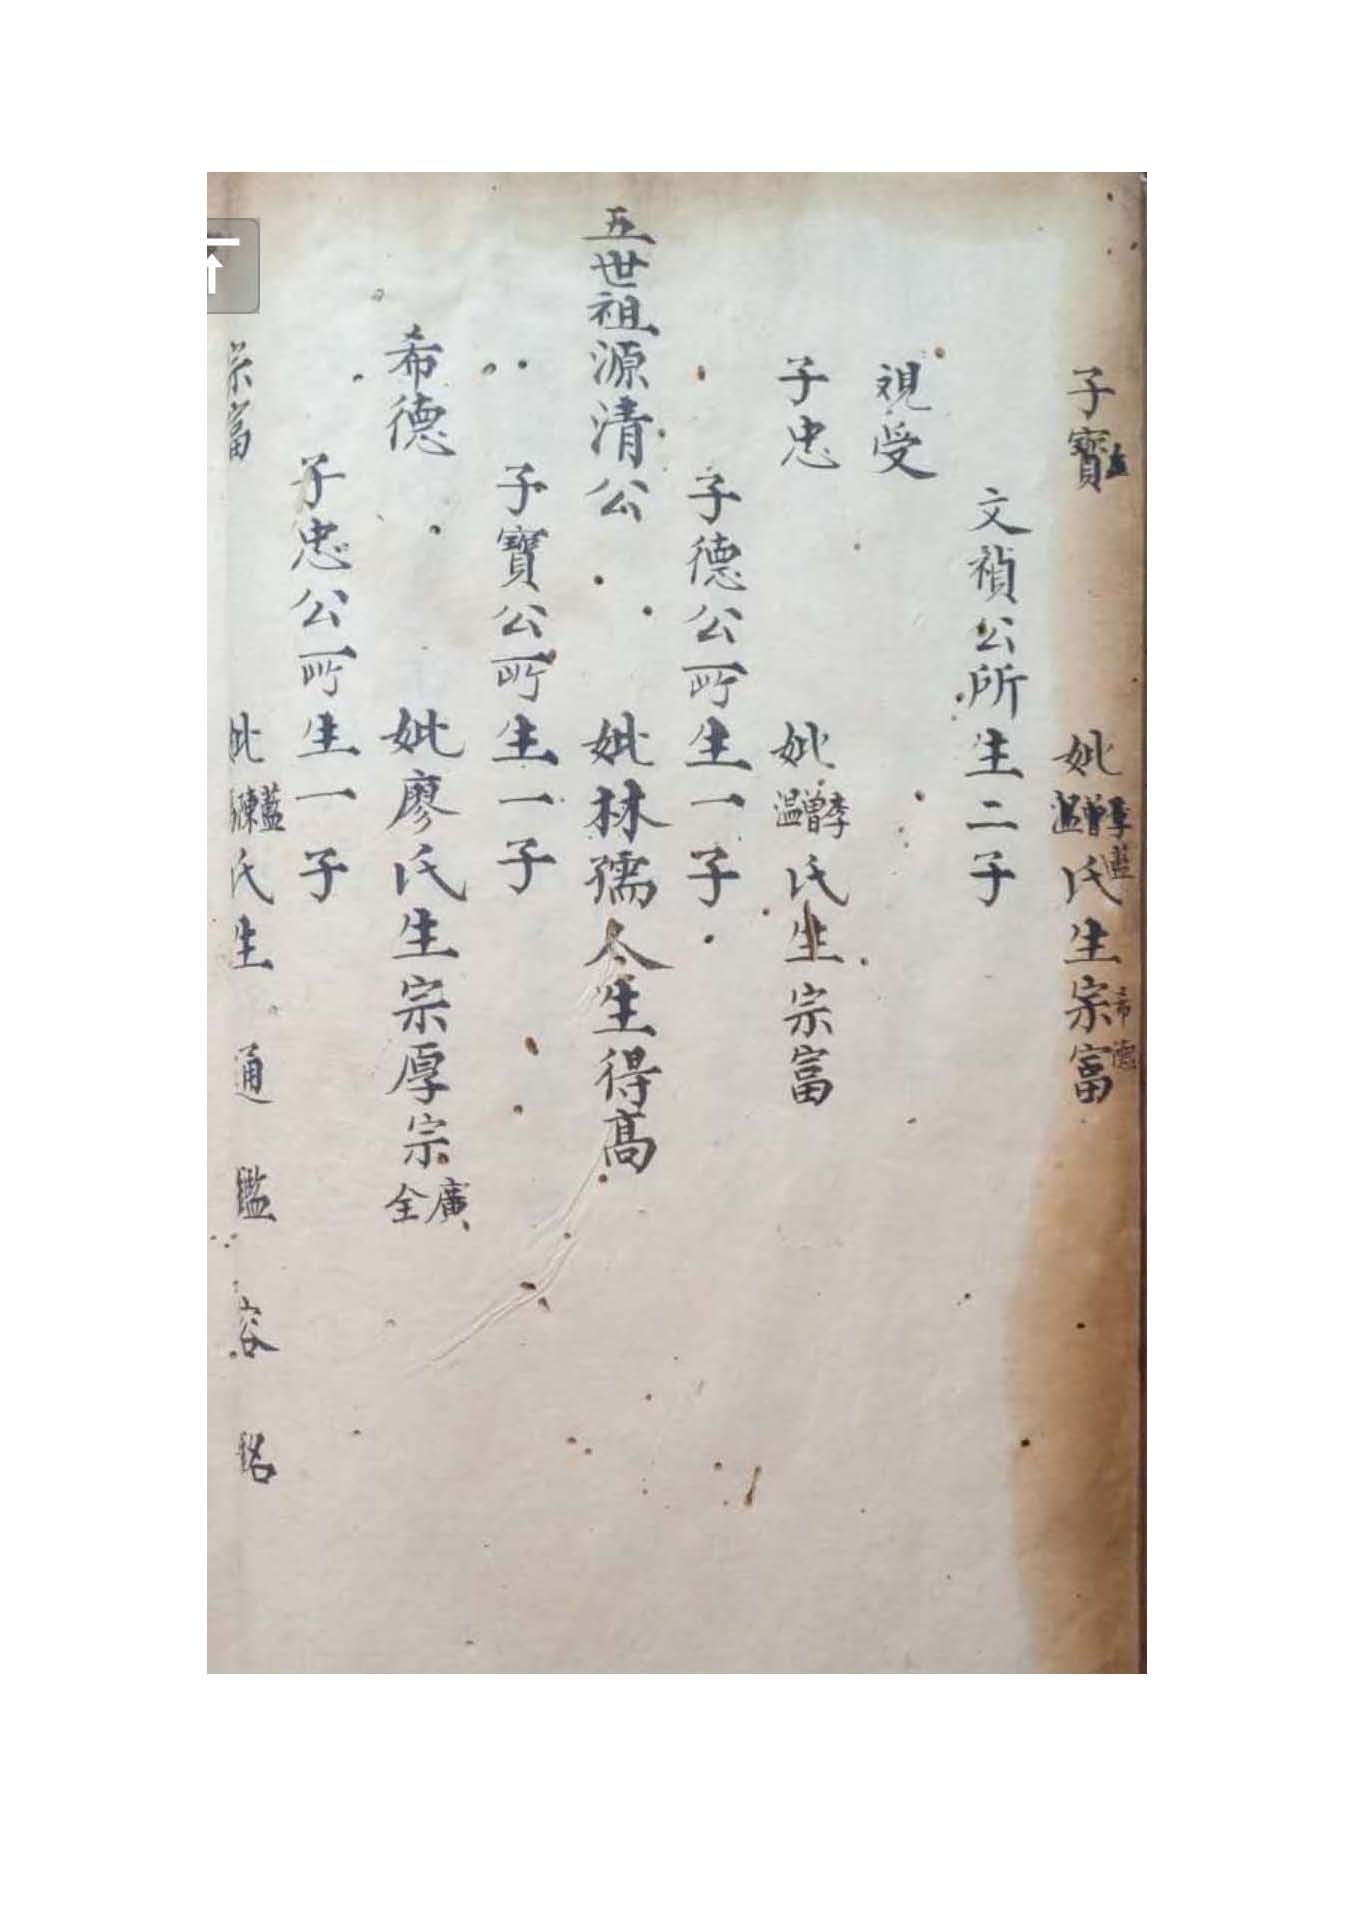 子寶 妣李曾溫藍氏生宗富希德
文禎公所生二子
視受
子忠 妣李曾溫氏生宗富
子德公所生一子
五世祖源清公 妣林孺人生得髙
子寶公所生一子
希德 妣廖氏生宗厚宗廣全
子忠公所生一子
宗富 妣藍陳氏生通 鑑 容 銘